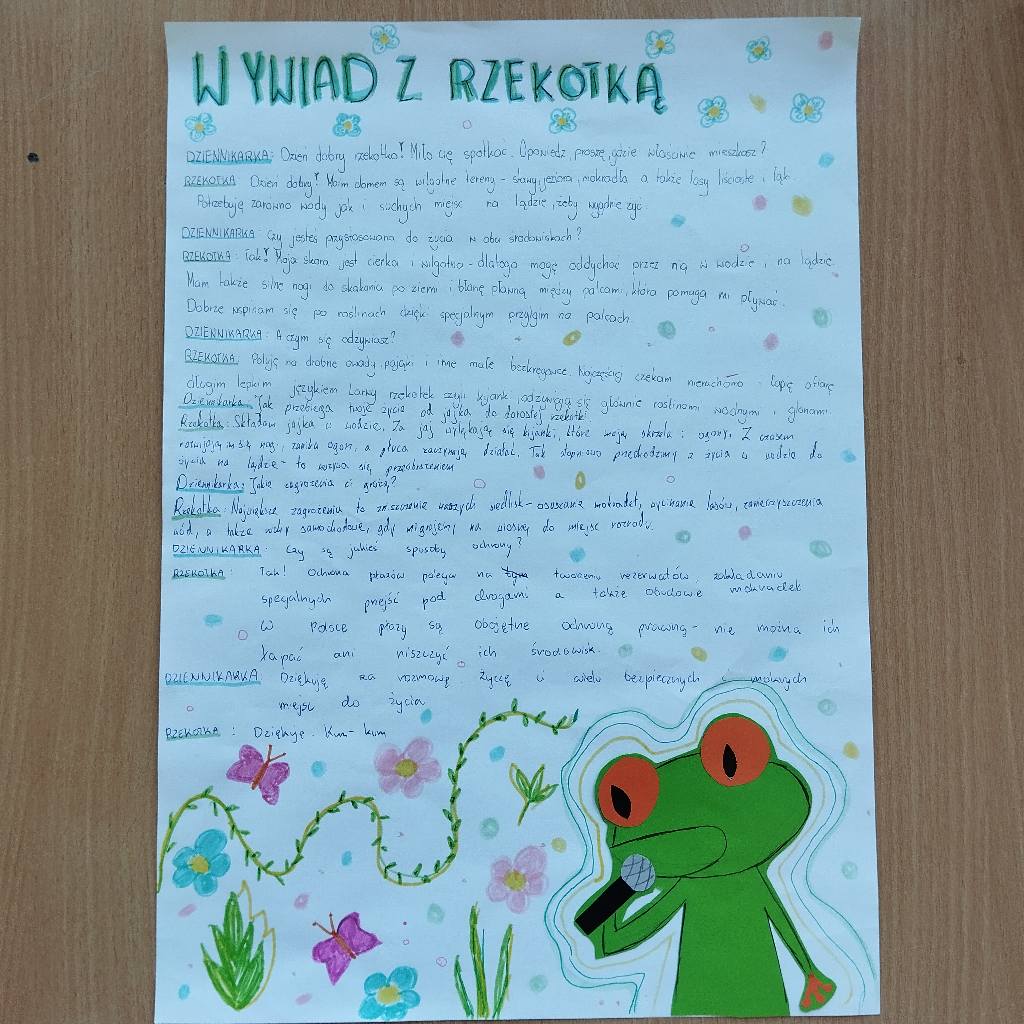 WYWIAD Z RZEKOTKĄ
DZIENNIKARKA: Dzień dobry rzekotko! Miło cię spotkać. Opowiedz, proszę, gdzie właściwie mieszkasz?
RZEKOTKA: Dzień dobry! Moim domem są wilgotne tereny - stawy, jeziora, mokradła a także lasy liściaste i łąk.
Potrzebuję zarówno wody jak i suchych miejsc na lądzie, żeby wygodnie żyć.
DZIENNIKARKA: Czy jesteś przystosowana do życia w obu środowiskach?
RZEKOTKA: Tak! Moja skóra jest cienka i wilgotna - dlatego mogę oddychać przez nią w wodzie i na lądzie.
Mam także silne nogi do skakania po ziemi i błonę pławną między palcami, która pomaga mi pływać.
Dobrze wspinam się po roślinach dzięki specjalnym przylgom na palcach.
DZIENNIKARKA: A czym się odżywiasz?
RZEKOTKA: Poluję na drobne owady, pająki i inne małe bezkręgowce. Najczęściej czekam nieruchomo i łapię ofiarę
długim lepkim językiem. Larwy rzekotek czyli kijanki odżywiają się głównie roślinami wodnymi i glonami.
Dziennikarka: Jak przebiega twoje życie od jajka do dorosłej rzekotki
Rzekotka: Składam jajka w wodzie. Za jaj wylękają się kijanki, które mają skrzela i ogony. Z czasem
rozwijają im się nogi, zanika ogon, a płuca zaczynają działać. Tak stopniowo przechodzimy z życia w wodzie do
życia na lądzie - to nazywa się przeobrażeniem
Dziennikarka: Jakie zagrożenia ci grożą?
Rzekotka: Największe zagrożenia to zniszczenie naszych siedlisk - osuszanie mokradeł, wycinanie lasów, zanieczyszczenia
wód, a także ruchy samochodowe, gdy migrujemy na wiosnę do miejsc rozrodu.
DZIENNIKARKA: Czy są jakieś sposoby ochrony?
RZEKOTKA: Tak! Ochrona płazów polega na tworzeniu rezerwatów, zakładaniu
specjalnych przejść pod drogami a także obudowie mokradeł
W Polsce płazy są objęte ochroną prawną - nie można ich
łapać ani niszczyć ich środowisk.
DZIENNIKARKA: Dziękuję za rozmowę życzę ci wielu bezpiecznych i mokrych
miejsc do życia
RZEKOTKA: Dziękuje. Kum-kum